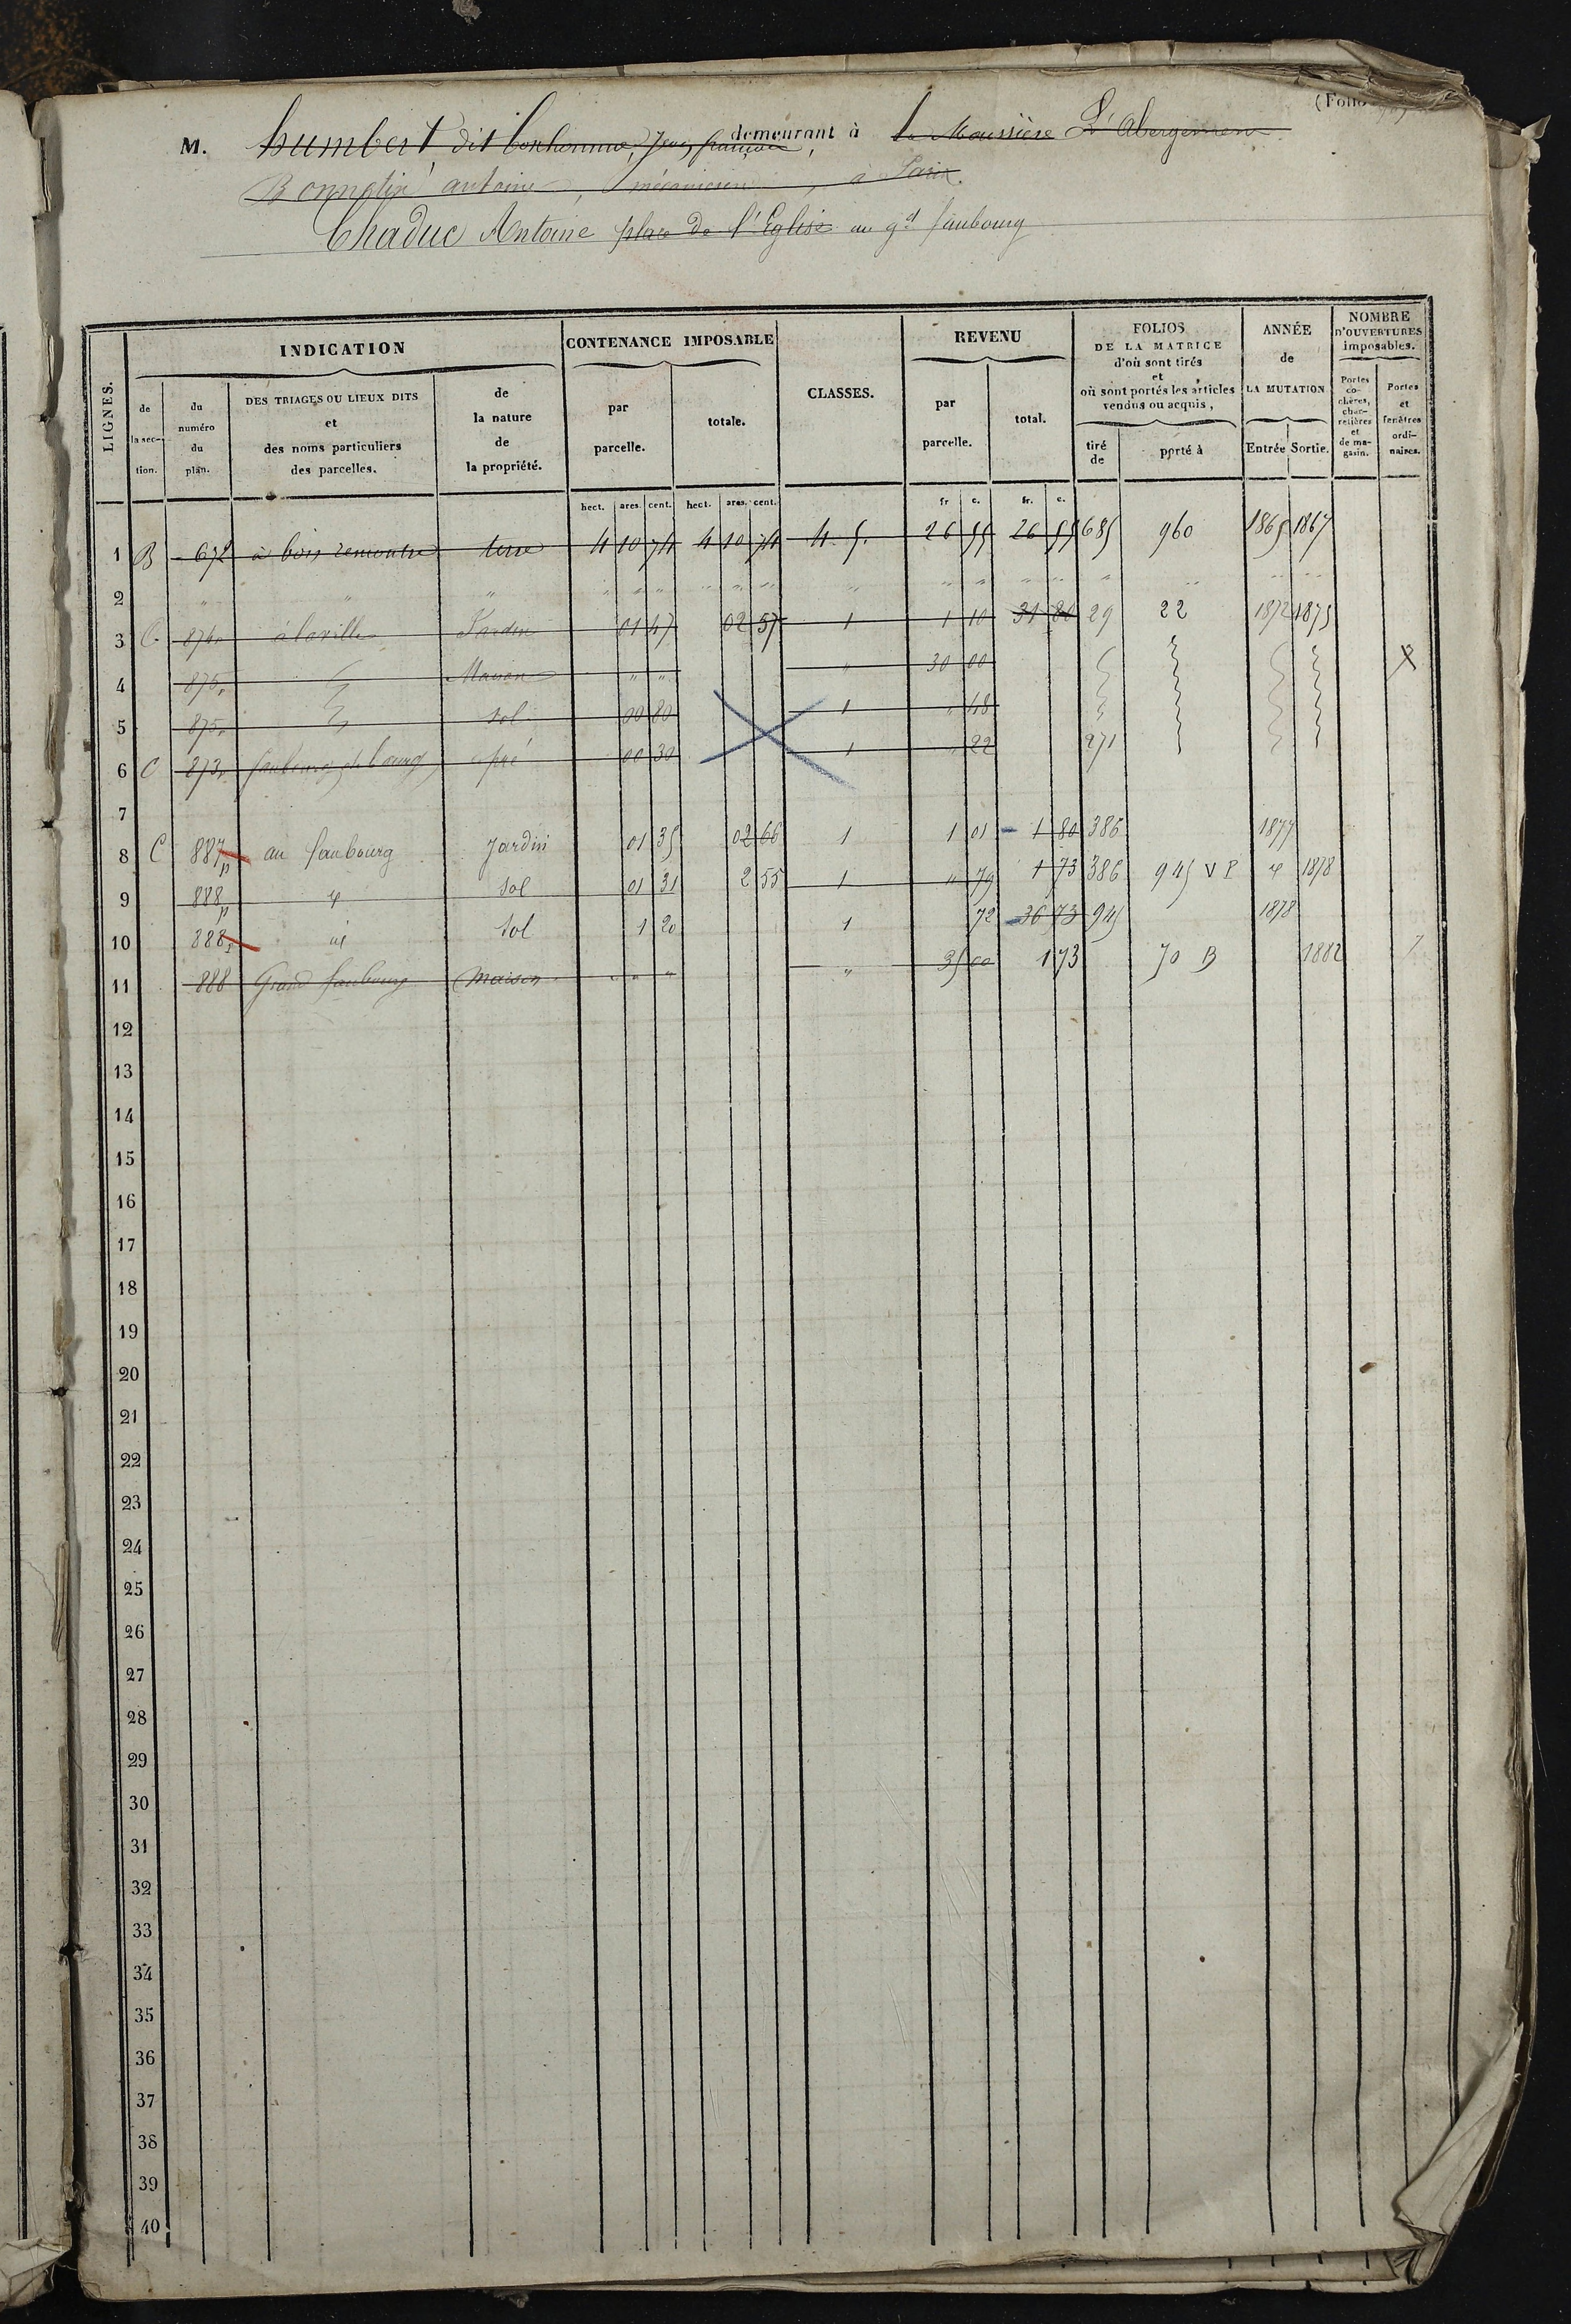 (Folio
M. humbert dit bonhomme, Jean françois, demeurant à la Moussière L'Abergement
Bonnotin antoine, mécanicien, à Paris.
Chaduc Antoine place de l'Eglise au gd faubourg
LIGNES. INDICATION CONTENANCE IMPOSABLE CLASSES. REVENU FOLIOS DE LA MATRICE d'où sont tirés et où sont portés les articles vendus ou acquis, ANNÉE de LA MUTATION NOMBRE D'OUVERTURES imposables.
de la section. du numéro du plan. DES TRIAGES OU LIEUX DITS et des noms particuliers des parcelles. de la nature de la propriété. par parcelle. totale. par parcelle. total. tiré de porté à Entrée Sortie. Portes cochères, charretières et de magasin. Portes et fenêtres ordinaires.
hect. ares. cent. hect. ares. cent. fr c. fr. c.
1 B 672 à bois remontre terre 4 10 74 4 10 74 4. 5. 26 55 26 55 685 960 1865 1867
2 " " " " " " " " " " " " " " " " "
3 C 874p à la ville Jardin 01 47 02 57 1 1 10 31 80 29 22 1872 1875
4 875p Maison " " " 30 00 X
5 875p sol 00 80 1 " 48
6 C 873p faubourg du bourg pré 00 30 1 " 22 271
7
8 C 887p au faubourg Jardin 01 35 02 66 1 1 01 1 80 386 1877
9 888p id sol 01 31 2 55 1 " 79 1 73 386 945 VP id 1878
10 888p id sol 1 20 1 72 36 73 945 1878
11 888 Grand faubourg Maison " " " " 35 00 1 73 70 B 1882 7
12
13
14
15
16
17
18
19
20
21
22
23
24
25
26
27
28
29
30
31
32
33
34
35
36
37
38
39
40